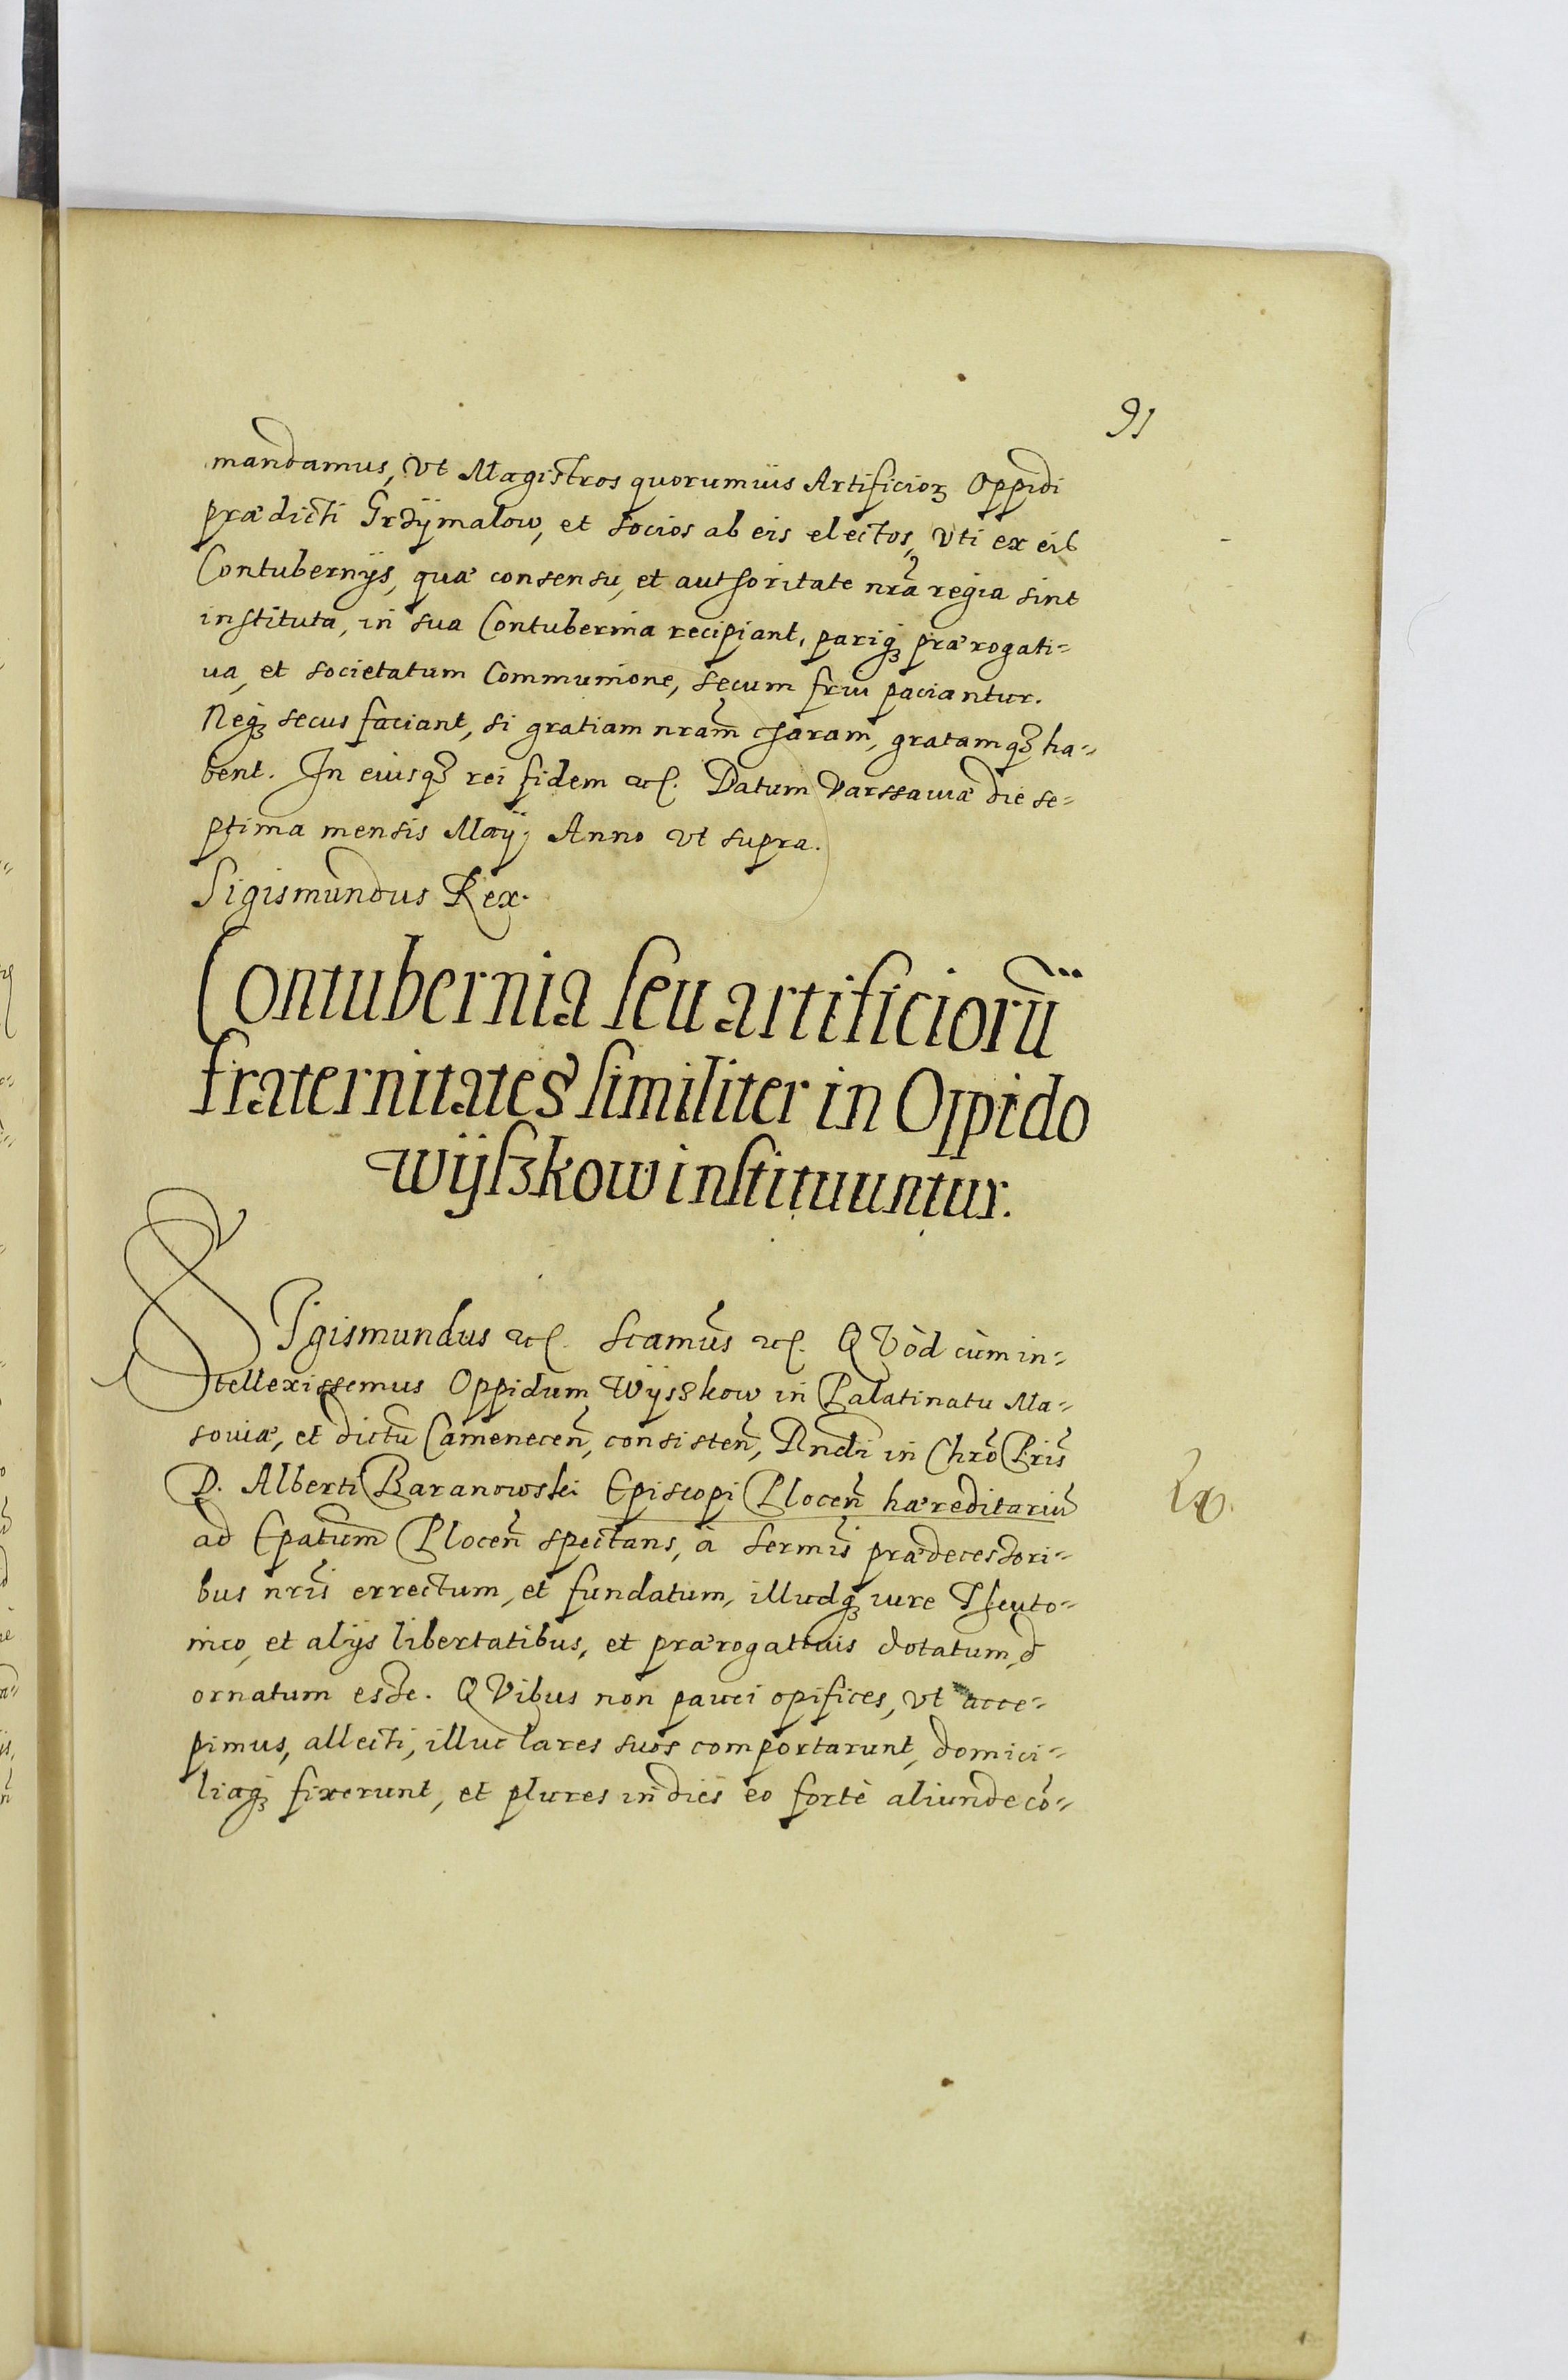 91
mandamus, vt Magistros quorumuis Artificioꝝ Oppidi
prædicti Grzÿmalow, et socios ab eis electos, vti ex eis
Contubernijs, quæ consensu, et authoritate nrã regia sint
instituta, in sua Contubernia recipiant, pariqꝫ prærogati=
ua, et societatum Communione, secum frui paciantur.
Neqꝫ secus faciant, si gratiam nram̃ charam, gratamqꝫ ha=
bent. In eiusqꝫ rei fidem etc. Datum Varssauiæ die se=
ptima mensis Maÿ, Anno vt supra.
Sigismundus Rex.
Contubernia seu artificiorũ
fraternitates similiter in Oppido
Wÿszkow instituuntur.
SIgismundus etc. Scamũs etc. QVòd cùm in=
tellexissemus Oppidum Wÿszkow in Palatinatu Ma=
souiæ, et dictũ Camenecen̄, consisten̄, Rndi in Chrõ Pris̃
D. Alberti Baranowski Episcopi Plocen̄ hæreditariũ
ad Epatum̃ Plocen̄ spectans, à Sermis̃ prædecessori=
bus nris̃ errectum, et fundatum, illudqꝫ iure Theuto=
nico, et alijs libertatibus, et prærogatiuis dotatum, &
ornatum esse. QVibus non pauci opifices, vt acce=
pimus, allecti, illuc lares suos comportarunt, domici=
liaqꝫ fixerunt, et plures in dies eo fortè aliunde cõ=